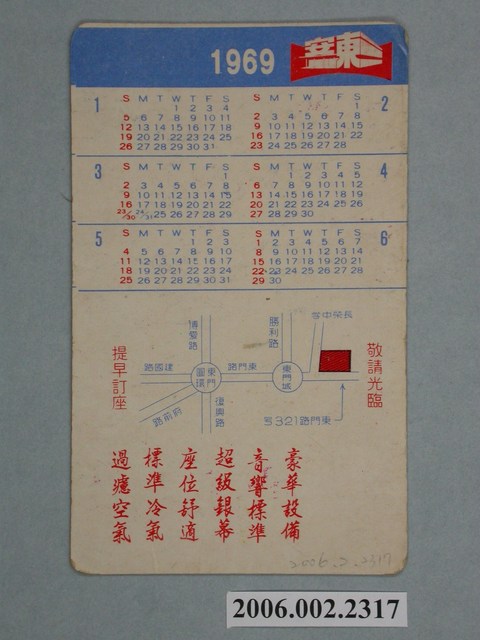 1969
東安
1
S M T W T F S
1 2 3 4
5 6 7 8 9 10 11
12 13 14 15 16 17 18
19 20 21 22 23 24 25
26 27 28 29 30 31
2
S M T W T F S
1
2 3 4 5 6 7 8
9 10 11 12 13 14 15
16 17 18 19 20 21 22
23 24 25 26 27 28
3
S M T W T F S
1
2 3 4 5 6 7 8
9 10 11 12 13 14 15
16 17 18 19 20 21 22
23/30 24/31 25 26 27 28 29
4
S M T W T F S
1 2 3 4 5
6 7 8 9 10 11 12
13 14 15 16 17 18 19
20 21 22 23 24 25 26
27 28 29 30
5
S M T W T F S
1 2 3
4 5 6 7 8 9 10
11 12 13 14 15 16 17
18 19 20 21 22 23 24
25 26 27 28 29 30 31
6
S M T W T F S
1 2 3 4 5 6 7
8 9 10 11 12 13 14
15 16 17 18 19 20 21
22 23 24 25 26 27 28
29 30
敬請光臨
長榮中学
勝利路
博愛路
東門城
東門路
東門圓環
建國路
府前路
復興路
東門路321号
提早訂座
豪華設備
音響標準
超級銀幕
座位舒適
標準冷氣
過濾空氣
2006.2.2317
2006.002.2317